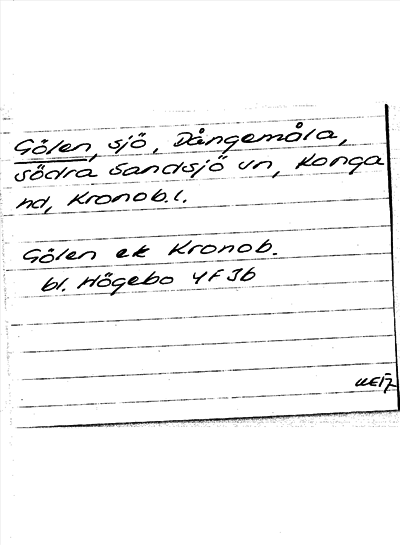 Gölen, sjö, Dångemåla,
Södra Sandsjö sn, Konga
hd, Kronob. l.
Gölen ek Kronob.
bl. Högebo 4F3b